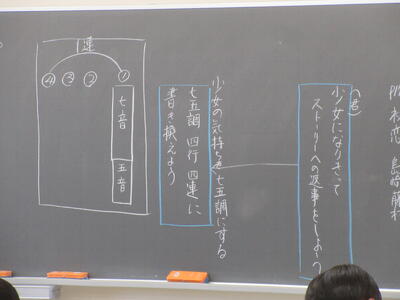 初恋 島崎藤村
(君)
少女になりきって
ストーリーへの返事をしよう
少女の気持ちを七五調にする
七五調 四行 四連に
書き換えよう
一連
① ② ③ ④
七音 五音